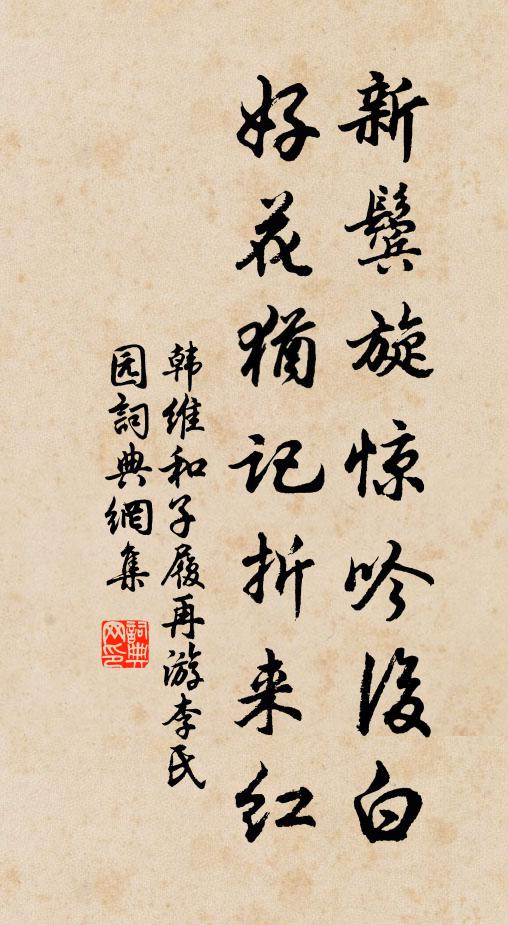 新鬓旋惊吟後白
好花猶记折来红
韩维和子履再游李氏
园詞典網集
詞典
网印